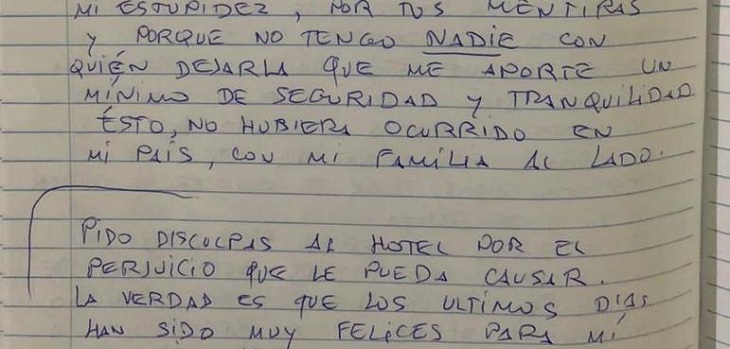 MI ESTUPIDEZ, POR TUS MENTIRAS
Y PORQUE NO TENGO NADIE CON
QUIÉN DEJARLA QUE ME APORTE UN
MÍNIMO DE SEGURIDAD Y TRANQUILIDAD
ÉSTO, NO HUBIERA OCURRIDO EN
MI PAÍS, CON MI FAMÍLIA AL LADO.
PIDO DISCULPAS AL HOTEL POR EL
PERJUICIO QUE LE PUEDA CAUSAR.
LA VERDAD ES QUE LOS ULTIMOS DIAS
HAN SIDO MUY FELICES PARA MÍ